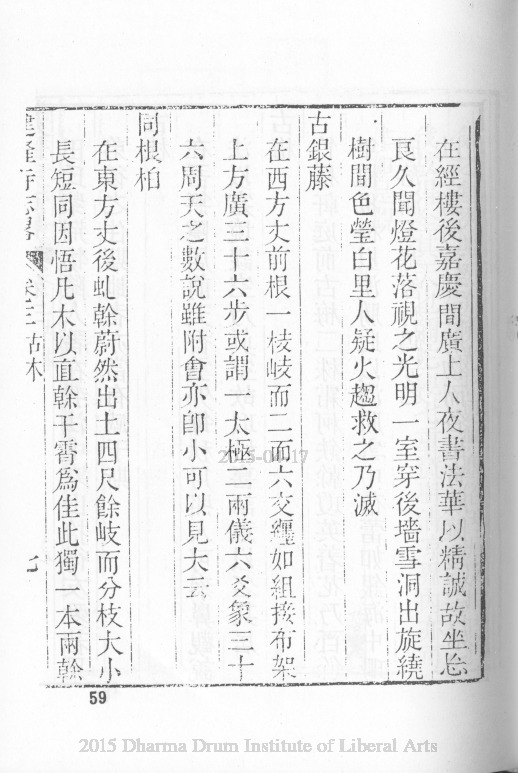 在經樓後嘉慶間廣上人夜書法華以精誠故坐忘
良久聞燈花落視之光明一室穿後墻雪洞出旋繞
樹間色瑩白里人疑火趨救之乃滅
古銀藤
在西方丈前根一枝岐而二而六交纒如組接布架
上方廣三十六步或謂一太極二兩儀六爻象三十
六周天之數說雖附會亦卽小可以見大云
同根柏
在東方丈後虬榦蔚然出土四尺餘岐而分枝大小
長短同因悟凡木以直榦干霄爲佳此獨一本兩榦
寺志畧 卷之三 古木 七
59
2015-04-17
2015 Dharma Drum Institute of Liberal Arts